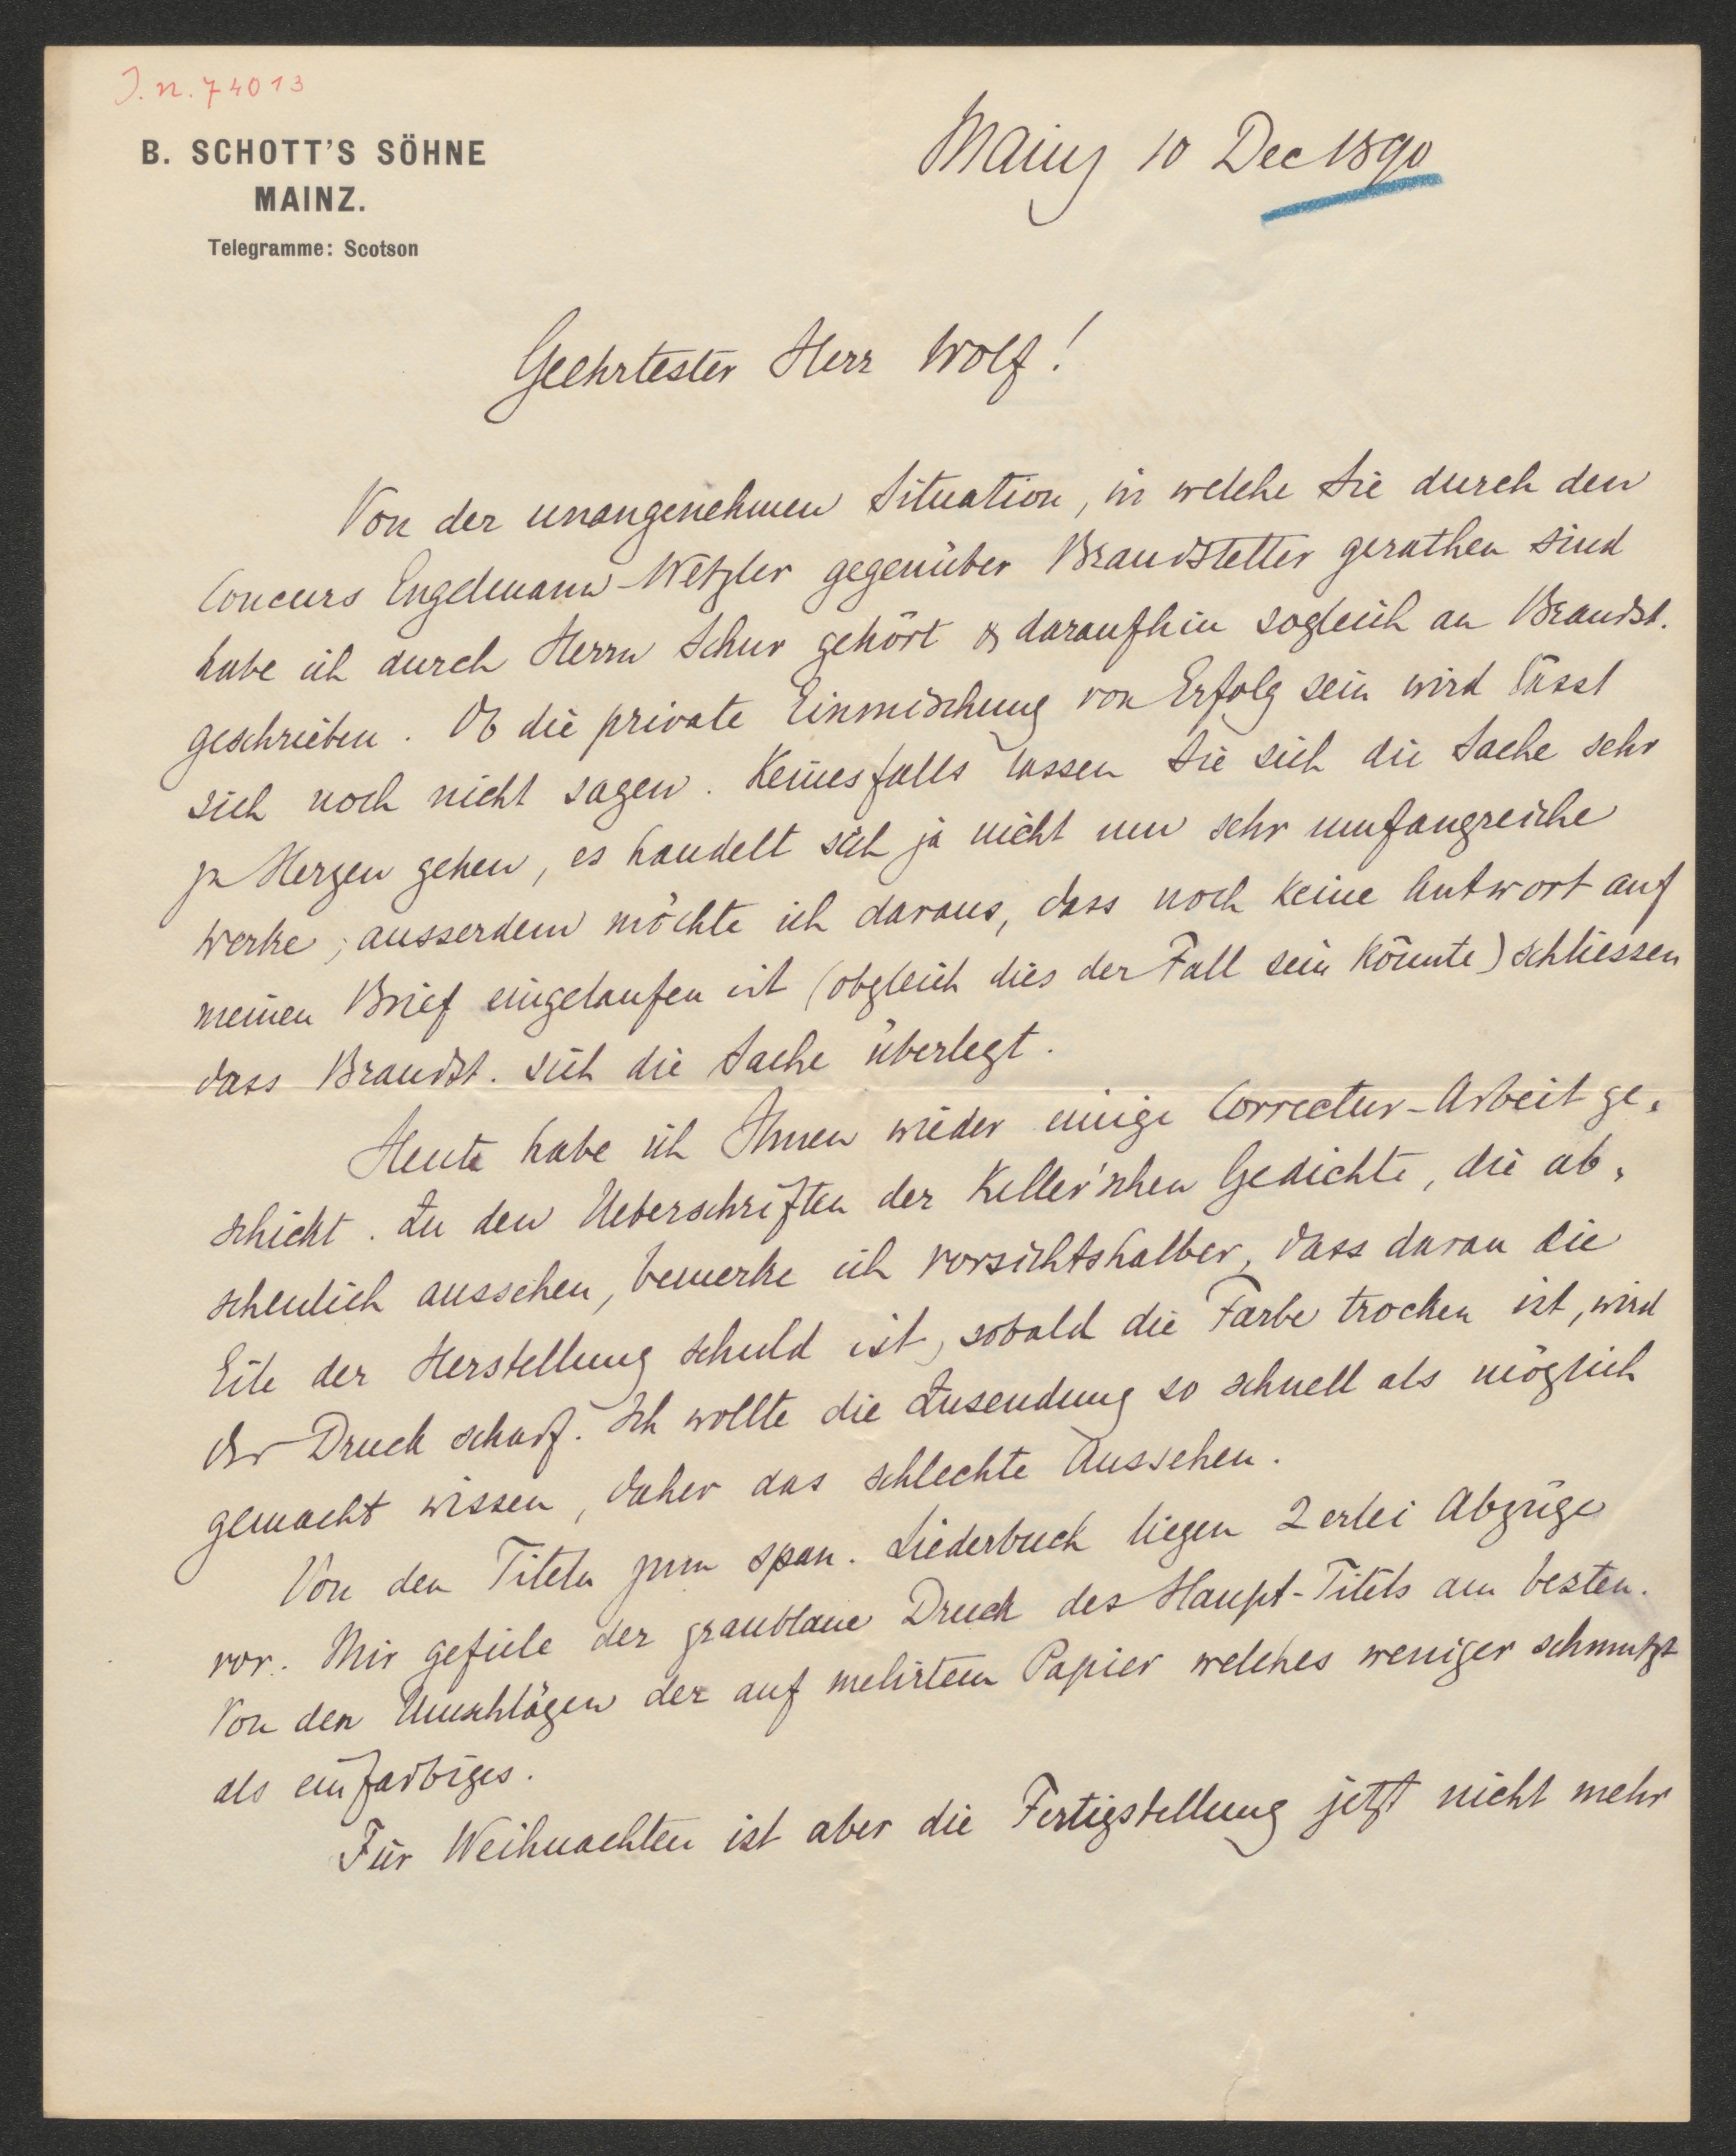 J. n. 74013
B. SCHOTT'S SÖHNE
MAINZ.
Telegramme: Scotson
Mainz 10 Dec 1890
Geehrtester Herr Wolf!
Von der unangenehmen Situation, in welche Sie durch den
Concurs Engelmann-Wetzler gegenüber Brandstetter gerathen sind
habe ich durch Herrn Schur gehört & daraufhin sogleich an Brandst.
geschrieben. Ob die private Einmischung von Erfolg sein wird lässt
sich noch nicht sagen. Keinesfalls lassen Sie sich die Sache sehr
zu Herzen gehen, es handelt sich ja nicht um sehr umfangreiche
Werke; ausserdem möchte ich daraus, dass noch keine Antwort auf
meinen Brief eingelaufen ist (obgleich dies der Fall sein könnte) schliessen
dass Brandst. sich die Sache überlegt.
Heute habe ich Ihnen wieder einige Correctur-Arbeit ge-
schickt. Zu den Ueberschriften der Keller'schen Gedichte, die ab-
scheulich aussehen, bemerke ich vorsichtshalber, dass daran die
Eile der Herstellung schuld ist, sobald die Farbe trocken ist, wird
der Druck scharf. Ich wollte die Zusendung so schnell als möglich
gemacht wissen, daher das schlechte Aussehen.
Von den Titeln zum span. Liederbuch liegen 2erlei Abzüge
vor. Mir gefiele der graublaue Druck des Haupt-Titels am besten.
Von den Umschlägen der auf melirtem Papier welches weniger schmutzt
als einfarbiges.
Für Weihnachten ist aber die Fertigstellung jetzt nicht mehr